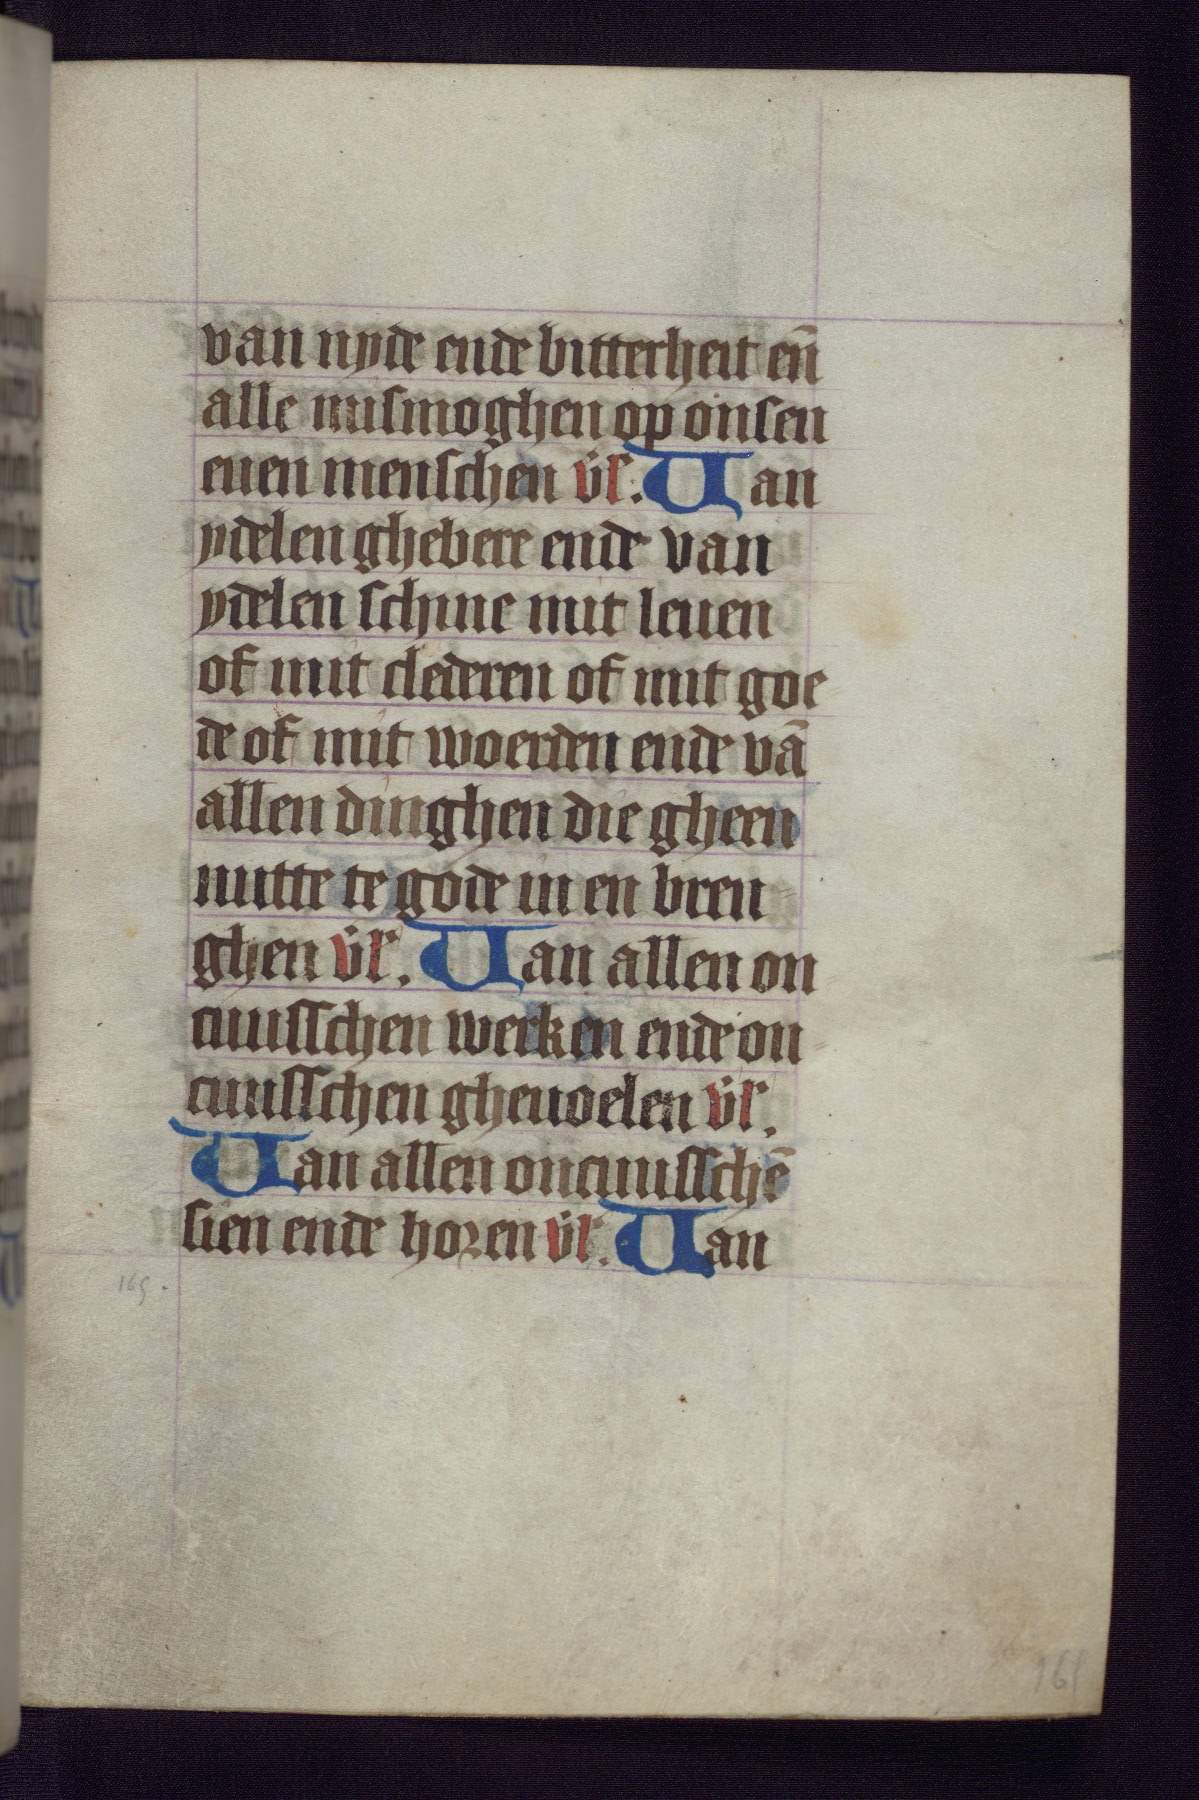 van nyde ende bitterheit en̄
alle mismoghen op onsen
euen menschen v̈l. Van
ydelen ghebere ende van
ydelen schine mit leuen
of mit clederen of mit goe
de of mit woerden ende vā
allen dinghen die gheen
nutte te gode in en bren
ghen v̈l. Van allen on
cuusschen werken ende on
cuusschen gheuoelen v̈l.
Van allen oncuusschē
sien ende horen v̈l. Van
165.
165